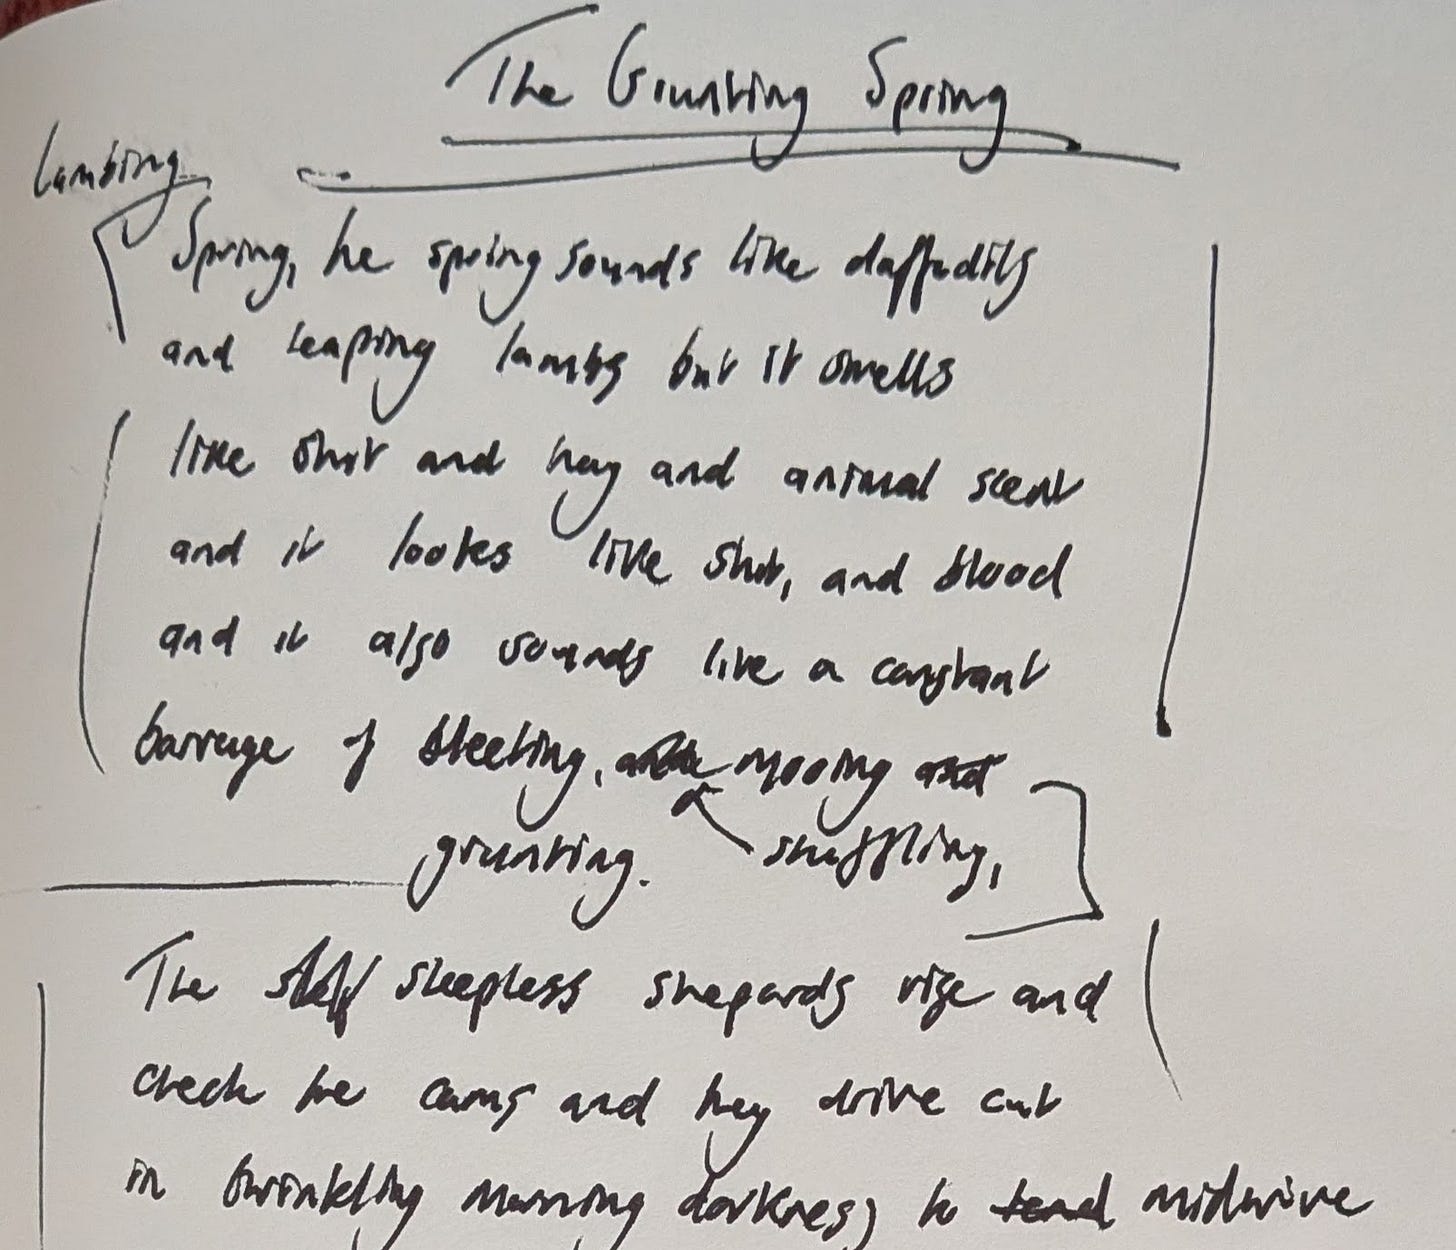 The Grunting Spring
Lambing
Spring, the spring sounds like daffodils
and leaping lambs but it smells
like shit and hay and animal scent
and it looks like shit, and blood
and it also sounds like a constant
barrage of bleeting, mooing and
grunting. snuffling,
The sleepless shepards rise and
check the cams and they drive out
in twinkling morning darkness to tend midwive